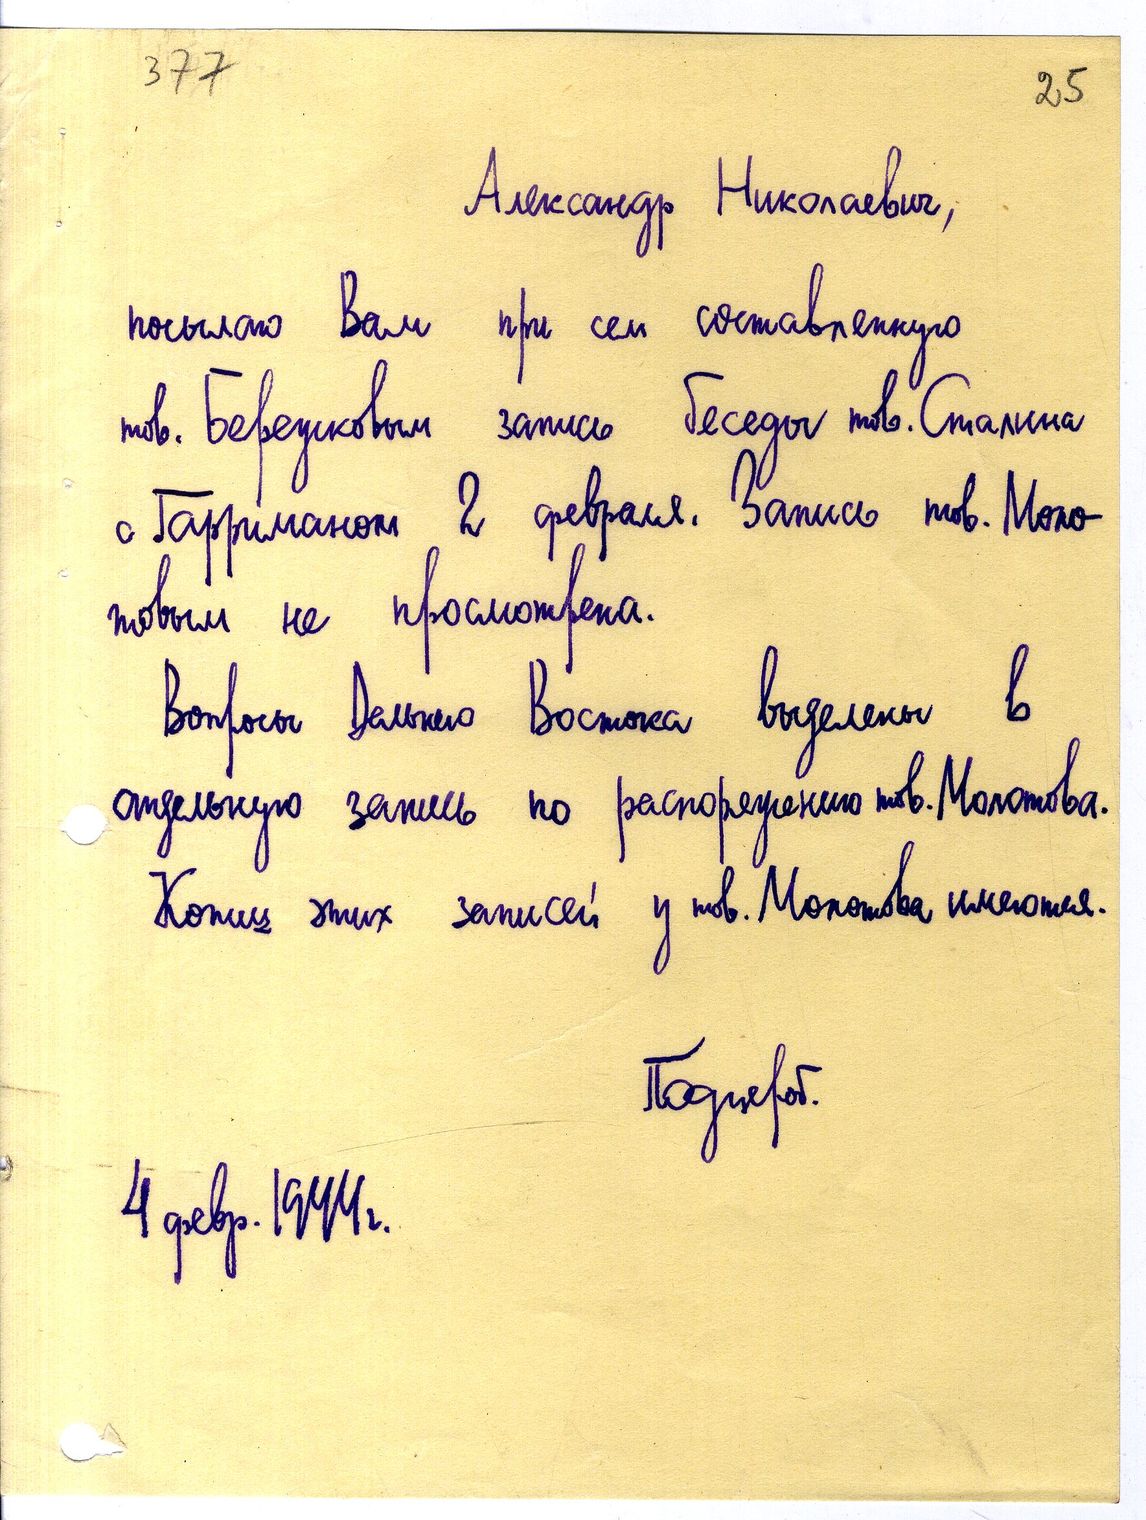 377
25
Александр Николаевич,
посылаю Вам при сем составленную
тов. Бережковым запись беседы тов. Сталина
с Гарриманом 2 февраля. Запись тов. Моло-
товым не просмотрена.
Вопросы Дальнего Востока выделены в
отдельную запись по распоряжению тов. Молотова.
Копии этих записей у тов. Молотова имеются.
Подцероб.
4 февр. 1944 г.